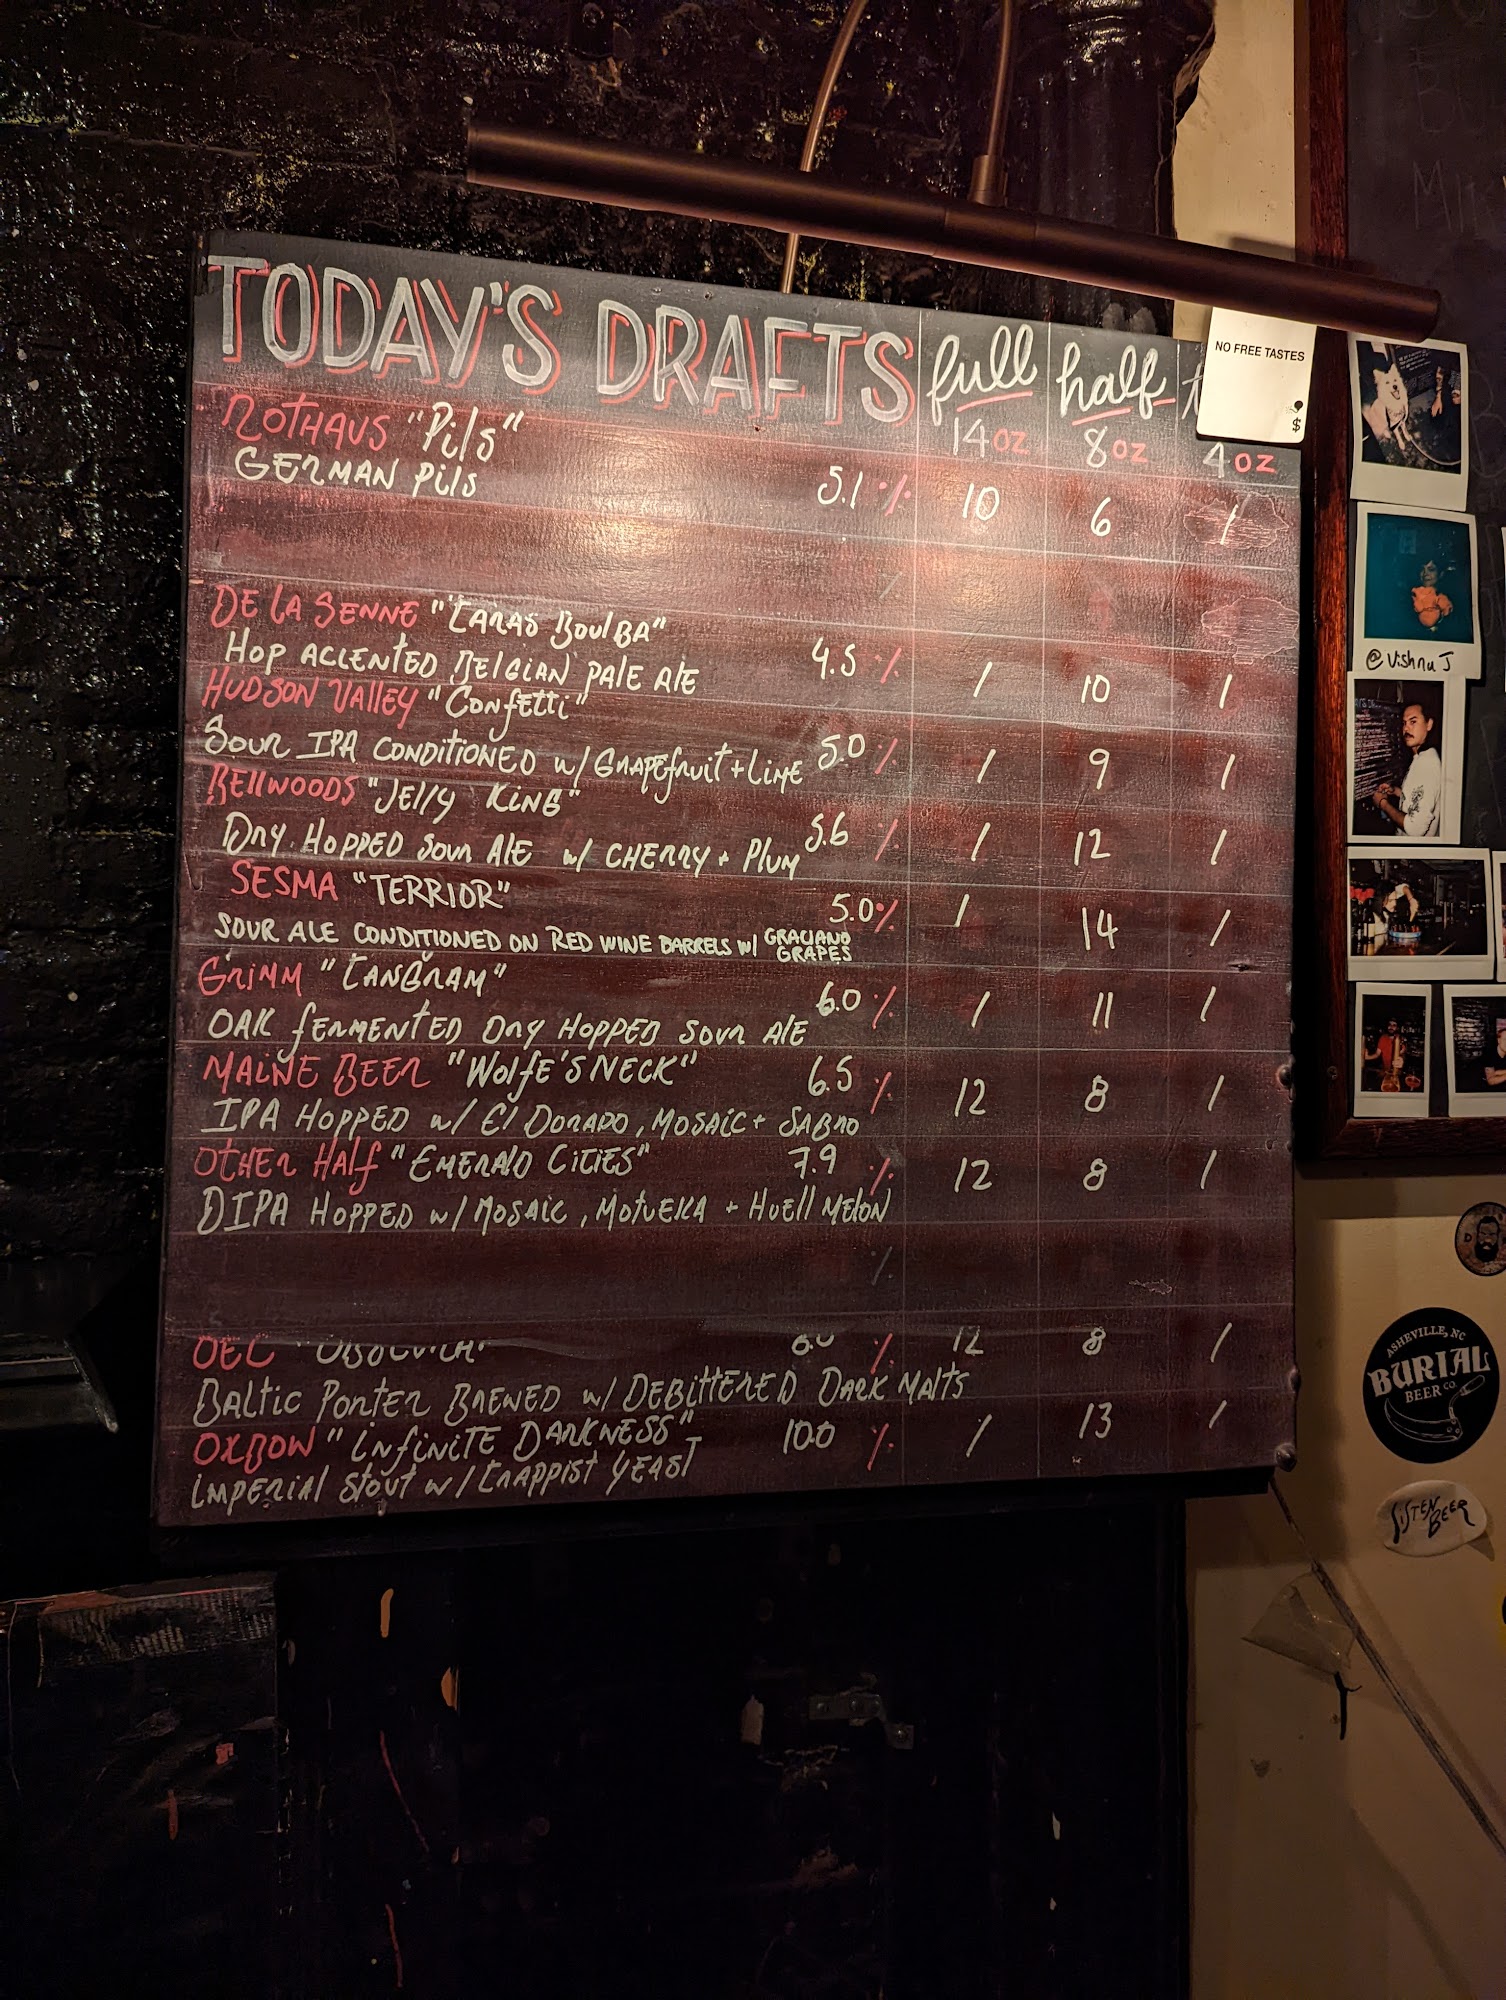 TODAY'S DRAFTS full half
14 oz 8 oz 4 oz
NO FREE TASTES
$
ROTHAUS "Pils"
GERMAN Pils 5.1 % 10 6 /
%
DE LA SENNE "TARAS BOULBA"
HOP ACCENTED BELGIAN PALE ALE 4.5 % / 10 /
HUDSON VALLEY "Confetti"
SOUR IPA CONDITIONED w/ GRAPEfruit + LIME 5.0 % / 9 /
BELLWOODS "JELLY KING"
DRY HOPPED SOUR ALE w/ CHERRY + PLUM 5.6 % / 12 /
SESMA "TERRIOR"
SOUR ALE CONDITIONED ON RED WINE BARRELS w/ GRACIANO GRAPES 5.0% / 14 /
GRIMM "TANGRAM"
OAK FERMENTED DRY HOPPED SOUR ALE 6.0 % / 11 /
MAINE BEER "Wolfe'S NECK" 6.5 % 12 8 /
IPA HOPPED w/ El DORADO, MOSAIC + SABRO
OTHER HAlf "EMERALD CITIES" 7.9 % 12 8 /
DIPA HOPPED w/ MOSAIC, MOTUEKA + HUEll MELON
%
OEC % 12 8 /
BALTIC PORTER BREWED w/ DEBITTERED DARK MALTS
OXBOW "INFINITE DARKNESS" 10.0 % / 13 /
IMPERIAL STOUT w/ TRAPPIST YEAST
@VishnuJ
ASHEVILLE, NC
BURIAL
BEER CO
SISTEN BEER